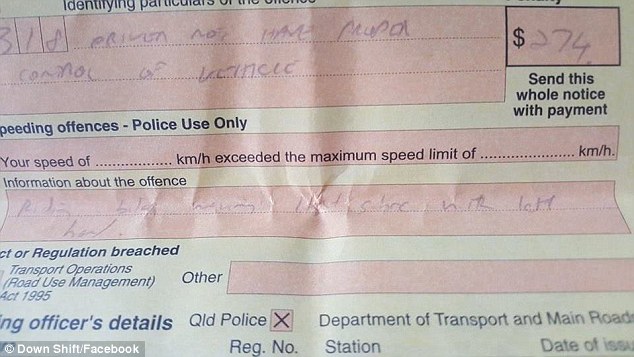 Identifying particulars of the offence
318 DRIVER NOT HAVE PROPER
CONTROL OF VEHICLE
$ 274
Send this
whole notice
with payment
peeding offences - Police Use Only
Your speed of .................. km/h exceeded the maximum speed limit of ...................... km/h.
Information about the offence
with left
hand.
ct or Regulation breached
Transport Operations
(Road Use Management)
Act 1995
Other
ng officer's details Qld Police X Department of Transport and Main Roads
Reg. No. Station Date of issu
© Down Shift/Facebook